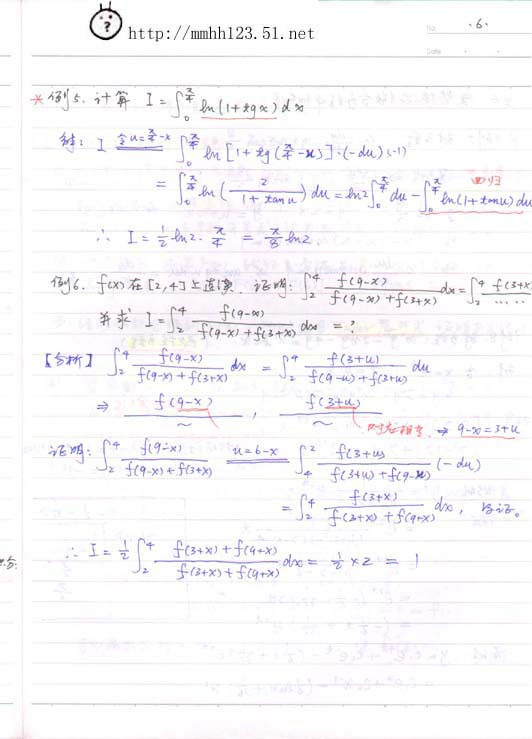 http://mmhh123.51.net
No. ·6·
Date
* 例5. 计算 I = ∫₀^{π/4} ln(1+tgx)dx
解: I 令u=π/4-x ∫₀^{π/4} ln[1+tg(π/4-u)]·(-du)·(-1)
= ∫₀^{π/4} ln(2/(1+tanu))du = ln2∫₀^{π/4}du - ∫₀^{π/4}ln(1+tanu)du 回归
∴ I = 1/2 ln2·π/4 = π/8 ln2.
例6. f(x)在[2,4]上连续. 证明: ∫₂⁴ f(9-x)/(f(9-x)+f(3+x)) dx = ∫₂⁴ f(3+x)/……
并求 I = ∫₂⁴ f(9-x)/(f(9-x)+f(3+x)) dx = ?
【分析】 ∫₂⁴ f(9-x)/(f(9-x)+f(3+x)) dx = ∫₂⁴ f(3+u)/(f(9-u)+f(3+u)) du
⇒ f(9-x)/~ , f(3+u)/~ 对应相等. ⇒ 9-x=3+u
证明: ∫₂⁴ f(9-x)/(f(9-x)+f(3+x)) u=6-x ∫₄² f(3+u)/(f(3+u)+f(9-u)) (-du)
= ∫₂⁴ f(3+x)/(f(3+x)+f(9+x)) dx,
∴ I = 1/2 ∫₂⁴ (f(3+x)+f(9+x))/(f(3+x)+f(9+x)) dx = 1/2 × 2 = 1